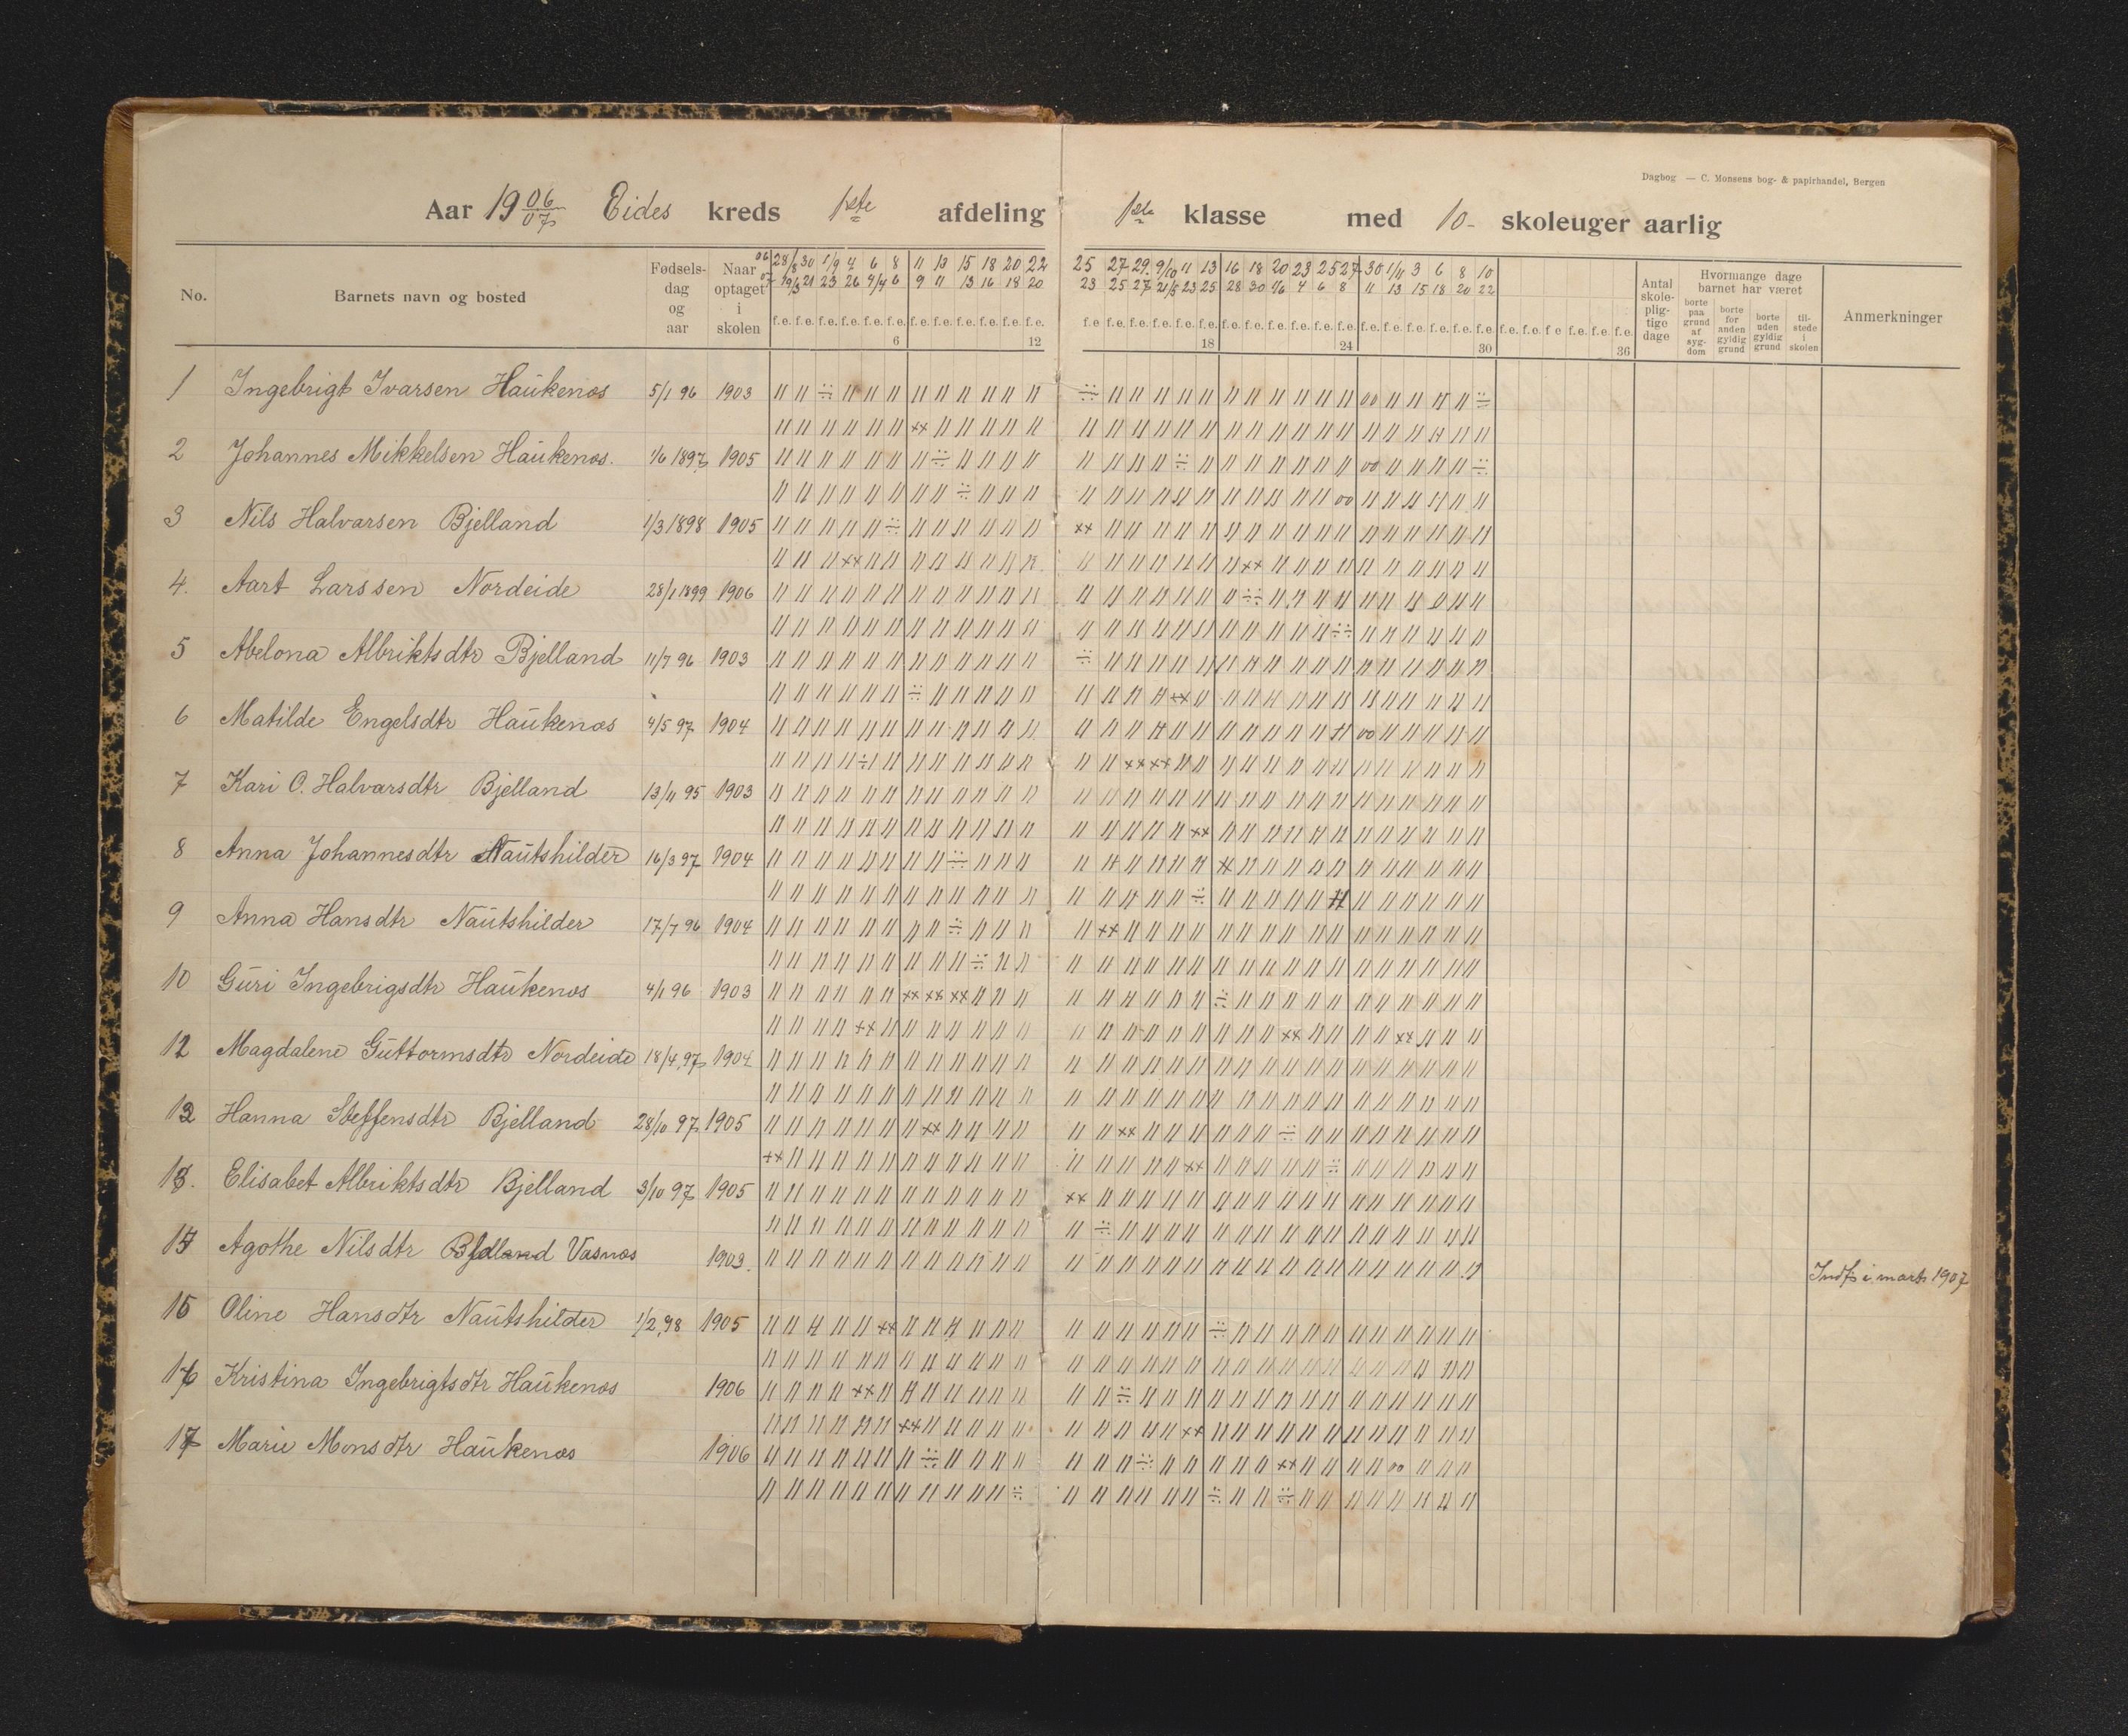 Dagbog — C. Monsens bog- & papirhandel, Bergen
Aar 19 06/07 Eides kreds 1ste afdeling 1ste klasse med 10- skoleuger aarlig
No. Barnets navn og bosted Fødsels-dag og aar Naar optaget i skolen
06 28/8 30 1/9 4 6 8 11 13 15 18 20 22 25 27 29 9/10 11 13 16 18 20 23 25 27 30 1/11 3 6 8 10
07 19/3 21 23 26 4/4 6 9 11 13 16 18 20 23 25 27 21/5 23 25 28 30 1/6 4 6 8 11 13 15 18 20 22
f.e. f.e. f.e. f.e. f.e. f.e. f.e. f.e. f.e. f.e. f.e. f.e. f.e f.e. f.e. f.e. f.e. f.e. f.e. f.e. f.e. f.e. f.e. f.e. f.e. f.e. f.e. f.e. f.e. f.e. f.e. f.e. f e f.e. f.e. f.e.
6 12 18 24 30 36
Antal skole-plig-tige dage
Hvormange dage barnet har været
borte paa grund af syg-dom
borte for anden gyldig grund
borte uden gyldig grund
til-stede i skolen
Anmerkninger
1 Ingebrigt Ivarsen Haukenæs 5/1 96 1903
2 Johannes Mikkelsen Haukenæs. 1/6 1897 1905
3 Nils Halvarsen Bjelland 1/3 1898 1905
4. Aart Larssen Nordeide 28/1 1899 1906
5 Abelona Albriktsdtr Bjelland 11/7 96 1903
6 Matilde Engelsdtr Haukenæs 4/5 97 1904
7 Kari O. Halvarsdtr Bjelland 13/11 95 1903
8 Anna Johannesdtr Nautshilder 16/3 97 1904
9 Anna Hansdtr Nautshilder 17/7 96 1904
10 Guri Ingebrigsdtr Haukenæs 4/1 96 1903
12 Magdalene Guttormsdtr Nordeide 18/4 97 1904
Hanna Steffensdtr Bjelland 28/10 97 1905
Elisabet Albriktsdtr Bjelland 3/10 97 1905
Agothe Nilsdtr Bjelland Vasnæs 1903.
Indf. i marts 1907
15 Oline Hansdtr Nautshilder 1/2 98 1905
16 Kristina Ingebrigtsdtr Haukenæs 1906
17 Marie Monsdtr Haukenæs 1906